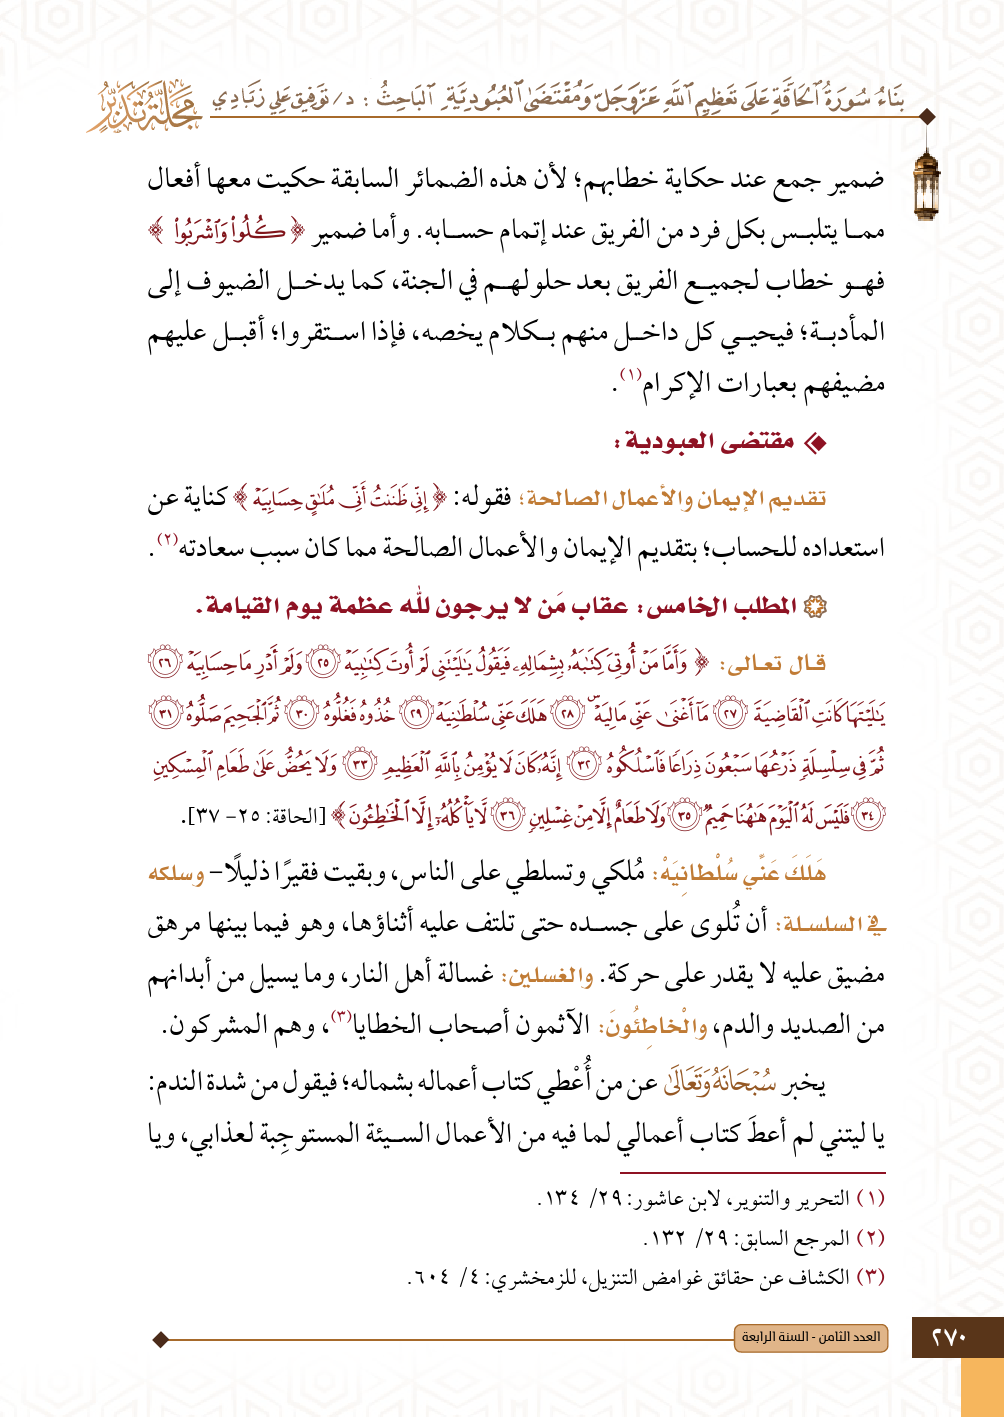 بِنَاءُ سُورَةُ الْحَاقَّةِ عَلَى تَعْظِيمِ اللَّهِ عَزَّوَجَلَّ وَمُقْتَضَى الْعُبُودِيَّةِ الْبَاحِثُ : د/ تَوْفِيق عَلِي زَبَادِي
مَجَلَّةُ تَدَبُّر
ضمير جمع عند حكاية خطابهم؛ لأن هذه الضمائر السابقة حكيت معها أفعال
ممـا يتلبـس بكل فرد من الفريق عند إتمام حسـابه. وأما ضمير ﴿ كُلُوا۟ وَٱشْرَبُوا۟ ﴾
فهـو خطاب لجميـع الفريق بعد حلولهـم في الجنة، كما يدخـل الضيوف إلى
المأدبـة؛ فيحيـي كل داخـل منهم بـكلام يخصه، فإذا اسـتقروا؛ أقبـل عليهم
مضيفهم بعبارات الإكرام(١).
مقتضى العبودية :
تقديم الإيمان والأعمال الصالحة؛ فقوله: ﴿ إِنِّى ظَنَنتُ أَنِّى مُلَٰقٍ حِسَابِيَهْ ﴾ كناية عن
استعداده للحساب؛ بتقديم الإيمان والأعمال الصالحة مما كان سبب سعادته(٢).
المطلب الخامس: عقاب مَن لا يرجون لله عظمة يوم القيامة.
قـال تعـالى: ﴿ وَأَمَّا مَنْ أُوتِىَ كِتَٰبَهُۥ بِشِمَالِهِۦ فَيَقُولُ يَٰلَيْتَنِى لَمْ أُوتَ كِتَٰبِيَهْ ٢٥ وَلَمْ أَدْرِ مَا حِسَابِيَهْ ٢٦
يَٰلَيْتَهَا كَانَتِ ٱلْقَاضِيَةَ ٢٧ مَآ أَغْنَىٰ عَنِّى مَالِيَهْ ۜ ٢٨ هَلَكَ عَنِّى سُلْطَٰنِيَهْ ٢٩ خُذُوهُ فَغُلُّوهُ ٣٠ ثُمَّ ٱلْجَحِيمَ صَلُّوهُ ٣١
ثُمَّ فِى سِلْسِلَةٍ ذَرْعُهَا سَبْعُونَ ذِرَاعًا فَٱسْلُكُوهُ ٣٢ إِنَّهُۥ كَانَ لَا يُؤْمِنُ بِٱللَّهِ ٱلْعَظِيمِ ٣٣ وَلَا يَحُضُّ عَلَىٰ طَعَامِ ٱلْمِسْكِينِ
٣٤ فَلَيْسَ لَهُ ٱلْيَوْمَ هَٰهُنَا حَمِيمٌ ٣٥ وَلَا طَعَامٌ إِلَّا مِنْ غِسْلِينٍ ٣٦ لَّا يَأْكُلُهُۥٓ إِلَّا ٱلْخَٰطِـُٔونَ ﴾ [الحاقة: ٢٥- ٣٧].
هَلَكَ عَنِّي سُلْطانِيَهْ: مُلكي وتسلطي على الناس، وبقيت فقيرًا ذليلًا- وسلكه
في السلسـلة: أن تُلوى على جسـده حتى تلتف عليه أثناؤها، وهو فيما بينها مرهق
مضيق عليه لا يقدر على حركة. والغسلين: غسالة أهل النار، وما يسيل من أبدانهم
من الصديد والدم، والْخاطِئُونَ: الآثمون أصحاب الخطايا(٣)، وهم المشركون.
يخبر سُبْحَانَهُ وَتَعَالَىٰ عن من أُعْطي كتاب أعماله بشماله؛ فيقول من شدة الندم:
يا ليتني لم أعطَ كتاب أعمالي لما فيه من الأعمال السـيئة المستوجِبة لعذابي، ويا
(١) التحرير والتنوير، لابن عاشور: ٢٩/ ١٣٤.
(٢) المرجع السابق: ٢٩/ ١٣٢.
(٣) الكشاف عن حقائق غوامض التنزيل، للزمخشري: ٤/ ٦٠٤.
العدد الثامن - السنة الرابعة
٢٧٠